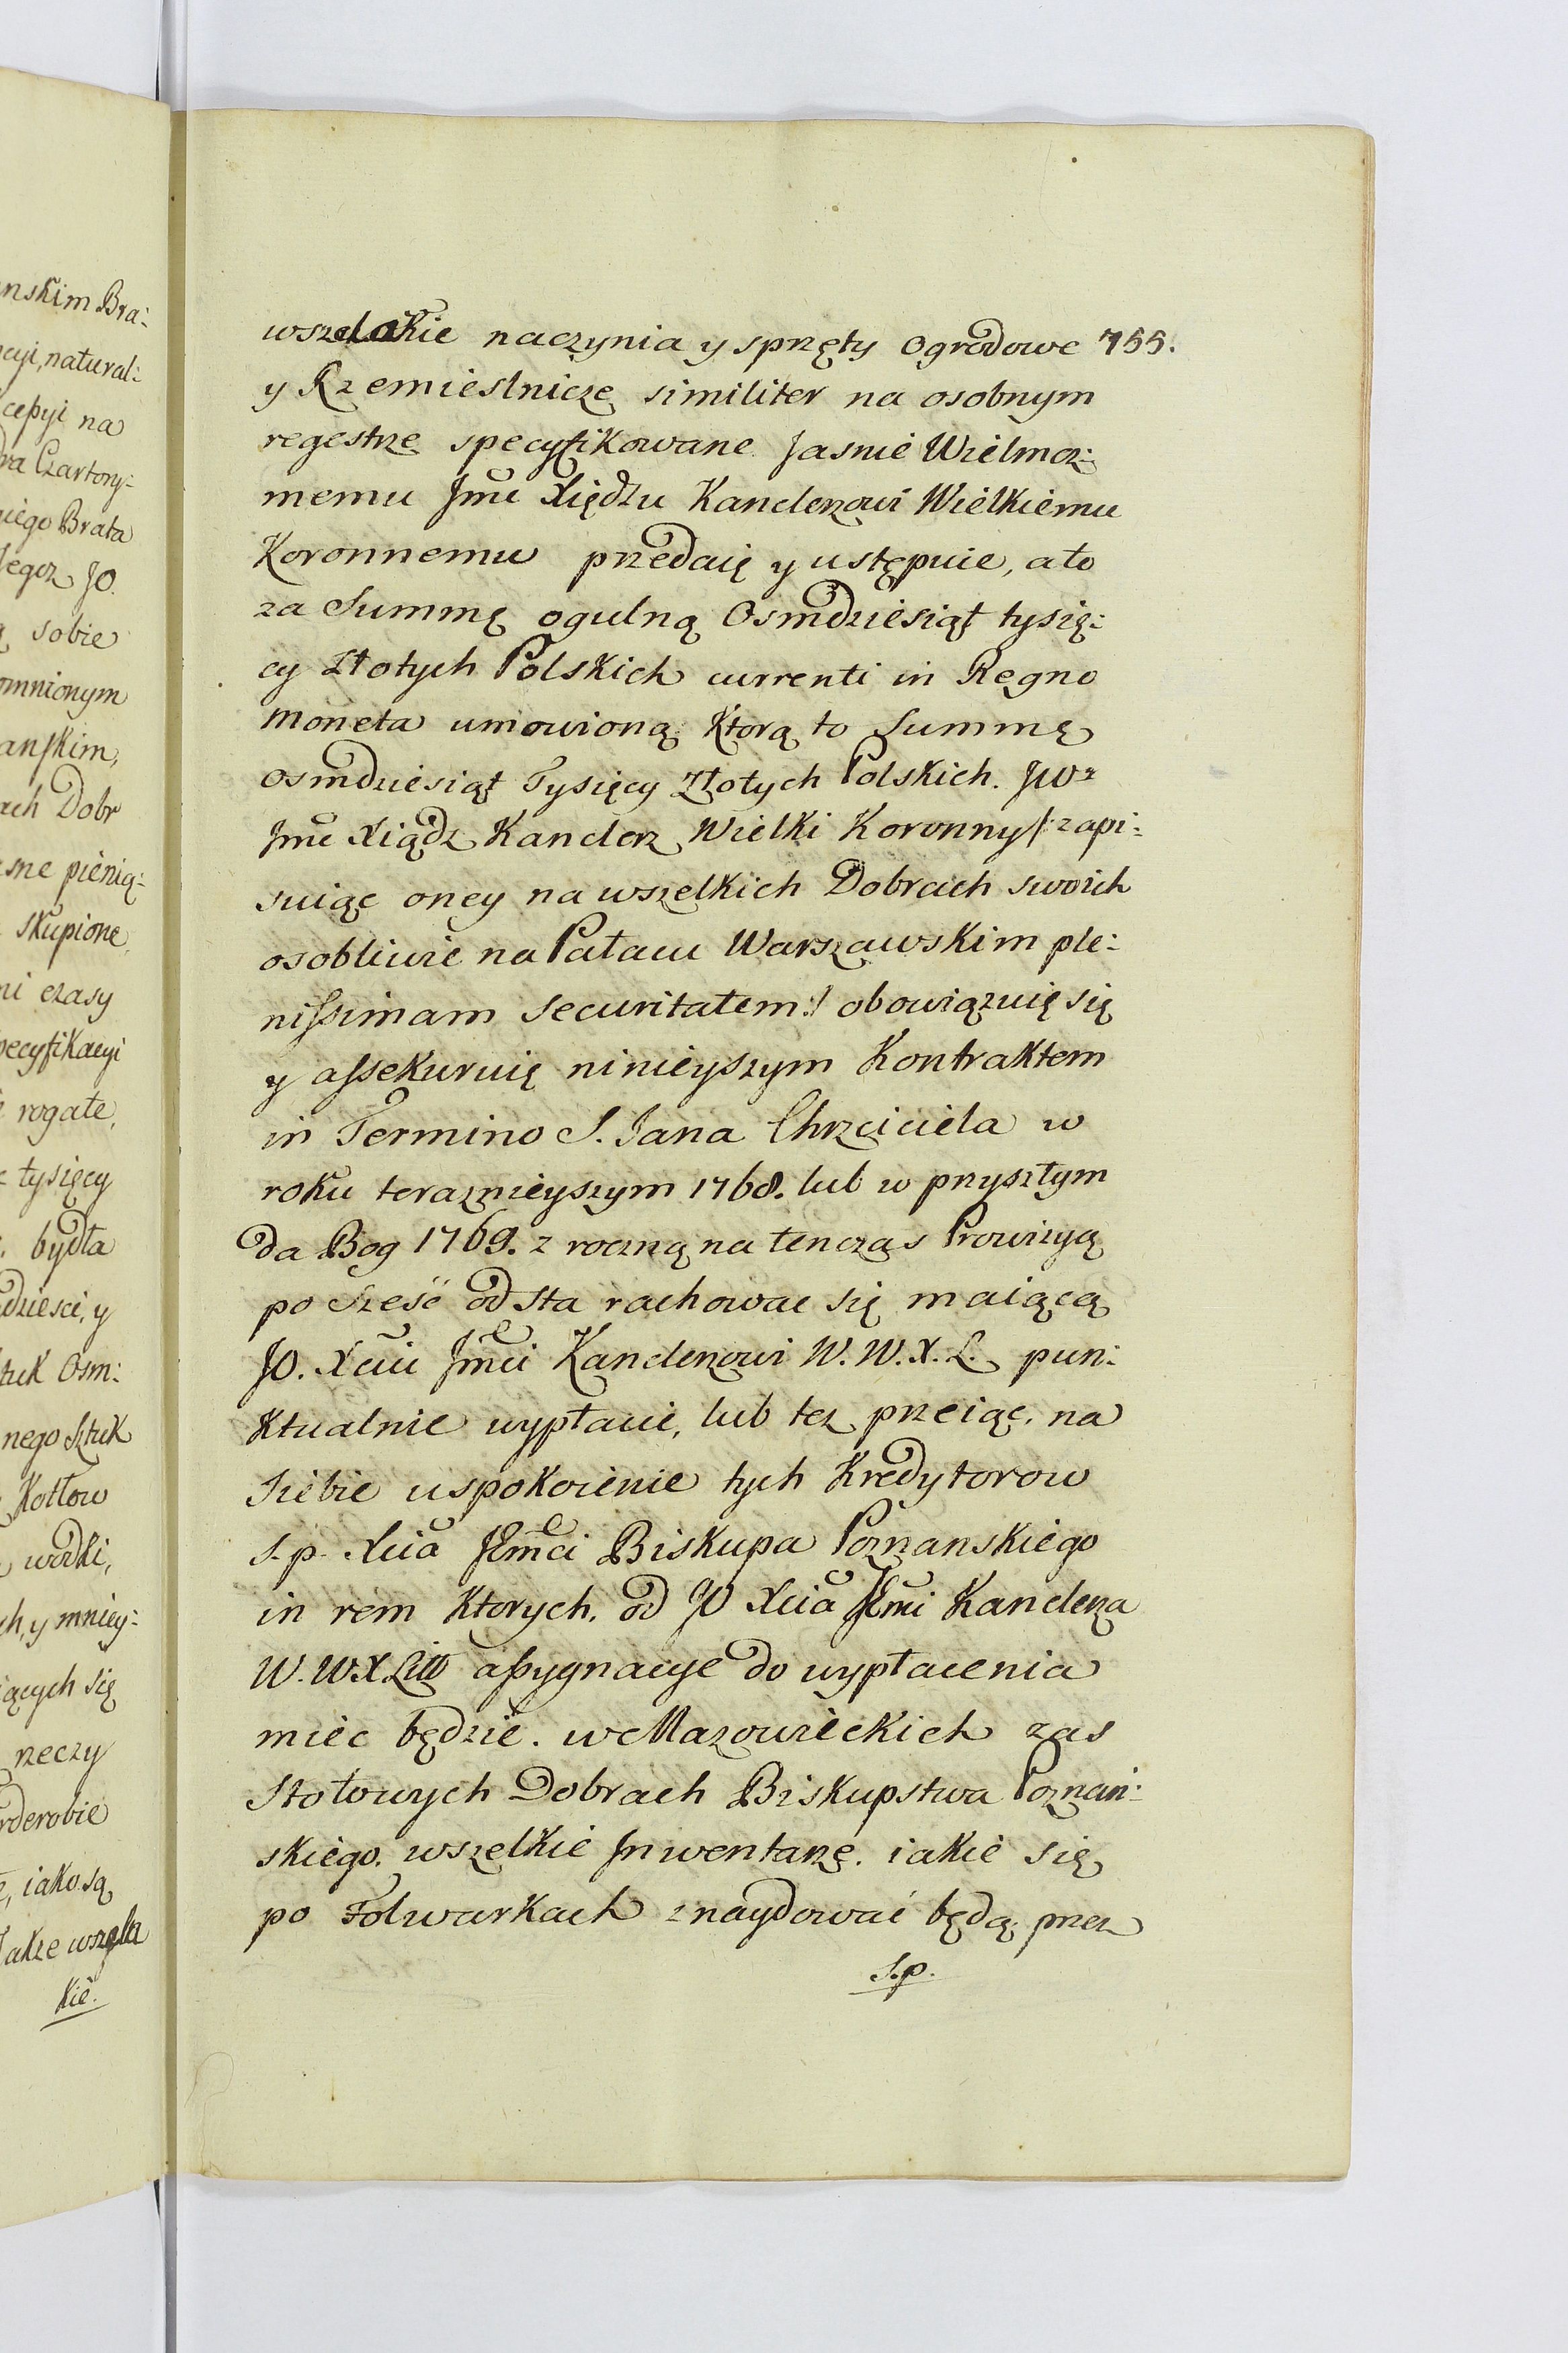 nskim Bra:
cyi, natural:
cepyi na
ra Czartory:
niego Brata
Jegoz JO.
sobie
omnionym
anskim,
ach Dobr
sne pienią:
skupione
ni czasy
pecyfikacyi
rogate,
tysięcy
bydła
dziesci, y
tuk Osm:
nego Sztuk
Kotłow
wodki,
ch, y mniey:
iących się
rzeczy
rderobie
iako są
Także wszela
kie.
wszelakie naczynia y sprzęty ogrodowe 755.
y Rzemieslnicze similiter na osobnym
regestrze specyfikowane Jasnie Wielmoz:
memu Jmu Xiędzu Kanclerzowi Wielkiemu
Koronnemu przedaię y ustępuie, a to
za Summę ogulną Osmdziesiąt tysię:
cy Złotych Polskich currenti in Regno
moneta umowioną. Ktorą to Summę
osmdziesiąt Tysięcy Złotych Polskich. JWz
Jmc Xiądz Kanclerz Wielki Koronny /: zapi:
suiąc oney na wszelkich Dobrach swoich
osobliwie na Pałacu Warszawskim ple:
nissimam securitatem :/ obowiązuię się
y assekuruię ninieyszym Kontraktem
in Termino S. Jana Chrzciciela w
roku teraznieyszym 1768. lub w przyszłym
da Bog 1769. z roczną na tenczas Prowizyą
po szesć od sta rachowac się maiącą
JO. Xciu Jmci Kanclerzowi W. W. X. L. pun:
ktualnie wypłacić, lub tez przeiąc, na
siebie uspokoienie tych Kredytorow
s. p. Xcia JEmci Biskupa Poznanskiego
in rem ktorych, od JO Xcia JEmci Kanclerza
W. W X Litt assygnacye do wypłacenia
miec będzie. w Mazowieckich zas
Stołowych Dobrach Biskupstwa Poznań:
skiego. wszelkie Jnwentarze. iakie się
po Folwarkach znaydować będą, przez
s. p.